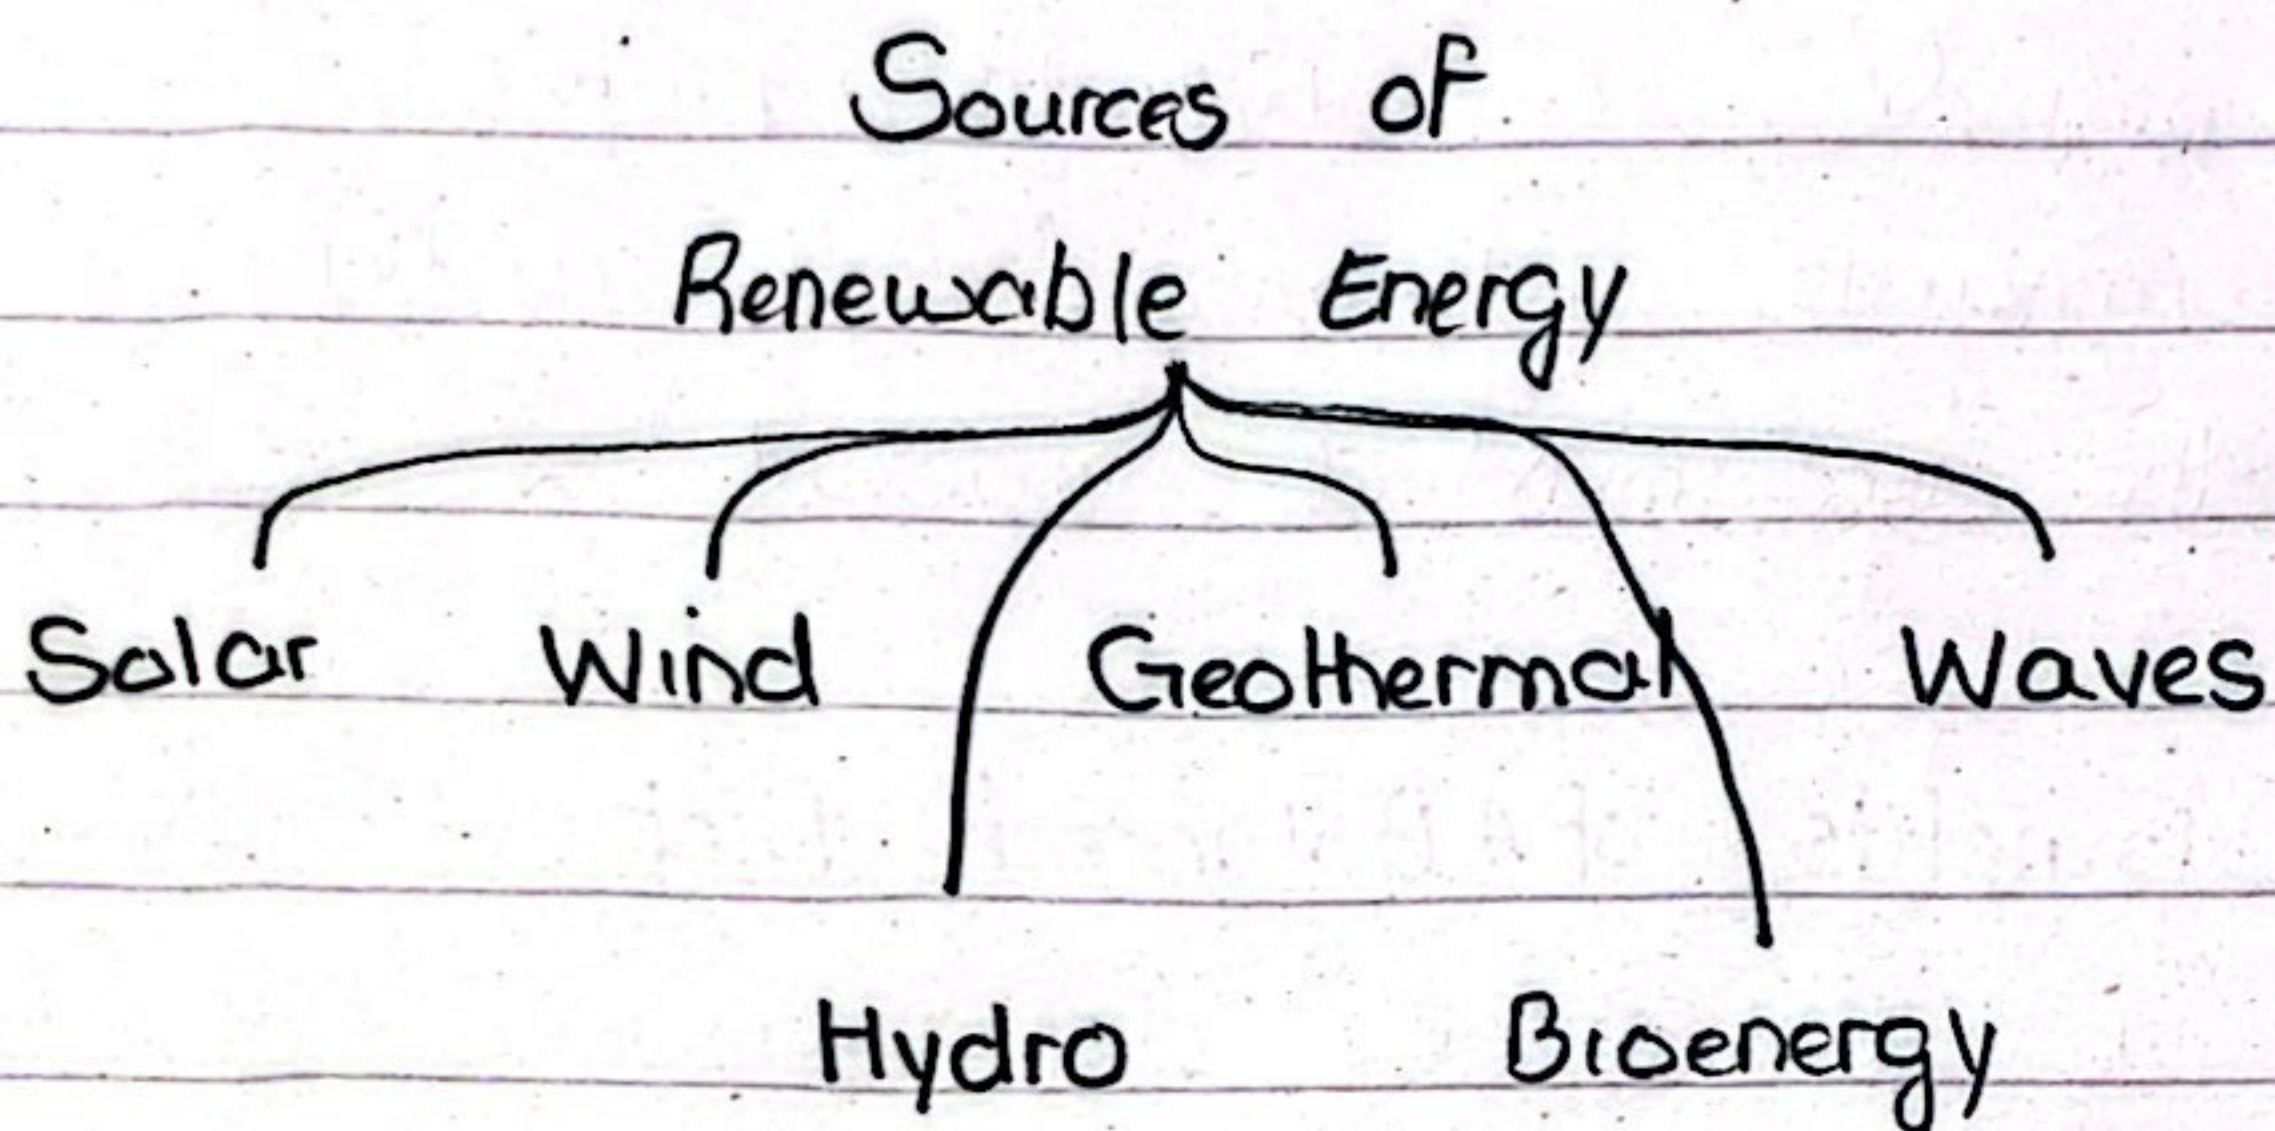 Sources of
Renewable Energy
Solar Wind Geothermal Waves
Hydro Bioenergy